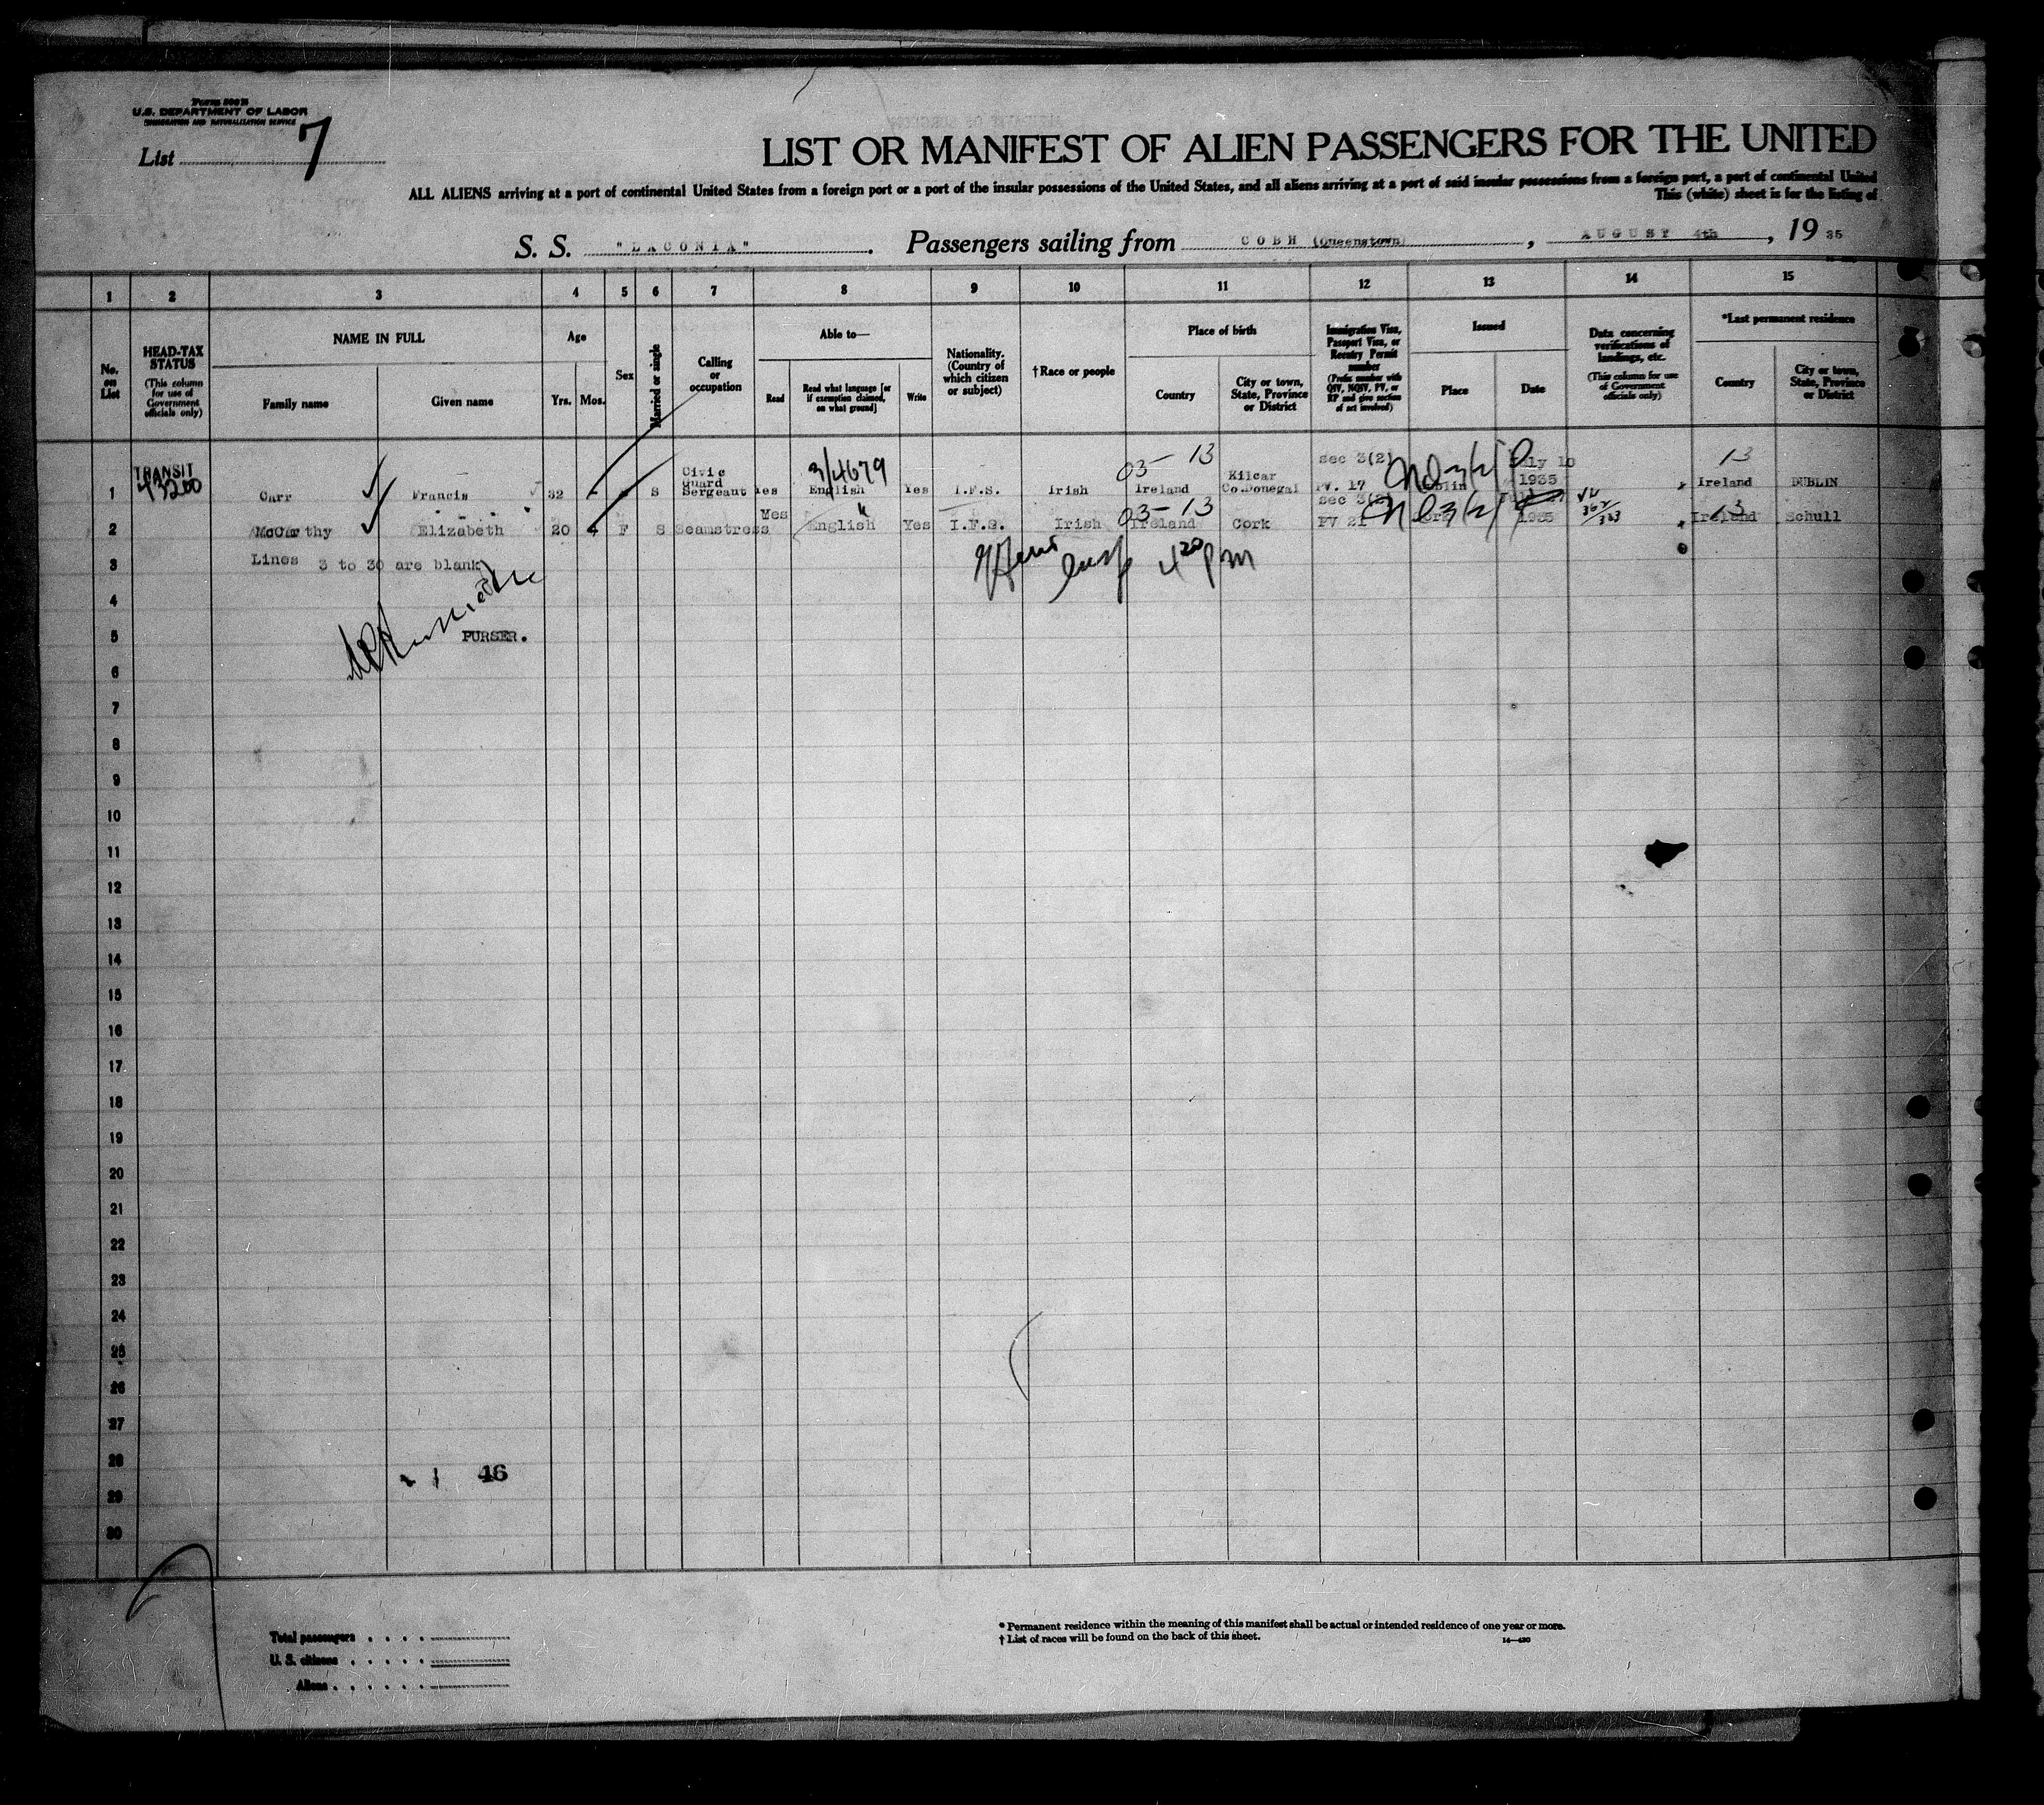 Form 500 B
U.S. DEPARTMENT OF LABOR
IMMIGRATION AND NATURALIZATION SERVICE
List 7
LIST OR MANIFEST OF ALIEN PASSENGERS FOR THE UNITED
ALL ALIENS arriving at a port of continental United States from a foreign port or a port of the insular possessions of the United States, and all aliens arriving at a port of said insular possessions from a foreign port, a port of continental United
This (white) sheet is for the listing of
S. S. "LACONIA". Passengers sailing from COBH (Queenstown), AUGUST 4th, 19 35
1 2 3 4 5 6 7 8 9 10 11 12 13 14 15
No. on List
HEAD-TAX STATUS
(This column for use of Government officials only)
NAME IN FULL
Family name
Given name
Age
Yrs. Mos.
Sex
Married or single
Calling or occupation
Able to—
Read
Read what language [or if exemption claimed, on what ground]
Write
Nationality. (Country of which citizen or subject)
†Race or people
Place of birth
Country
City or town, State, Province or District
Immigration Visa, Passport Visa, or Reentry Permit number
(Prefix number with QIV, NQIV, PV, or RP and give section of act involved)
Issued
Place
Date
Data concerning verifications of landings, etc.
(This column for use of Government officials only)
*Last permanent residence
Country
City or town, State, Province or District
TRANSIT
3/4679
03- 13
13
1 Carr Francis 32 - S Civic Guard Sergeant Yes English Yes I.F.S. Irish Ireland Kilcar Co.Donegal sec 3(2) PV. 17 July 10 1935 Ireland DUBLIN
03- 13
13
2 McCarthy Elizabeth 20 4 F S Seamstress Yes English " Yes I.F.S. Irish Ireland Cork PV 21 1935 Ireland Schull
3 Lines 3 to 30 are blank
4 20 pm
4
5 PURSER.
6
7
8
9
10
11
12
13
14
15
16
17
18
19
20
21
22
23
24
25
26
27
28
46
29
30
Total passengers
U. S. citizens
Aliens
* Permanent residence within the meaning of this manifest shall be actual or intended residence of one year or more.
† List of races will be found on the back of this sheet.
14—430